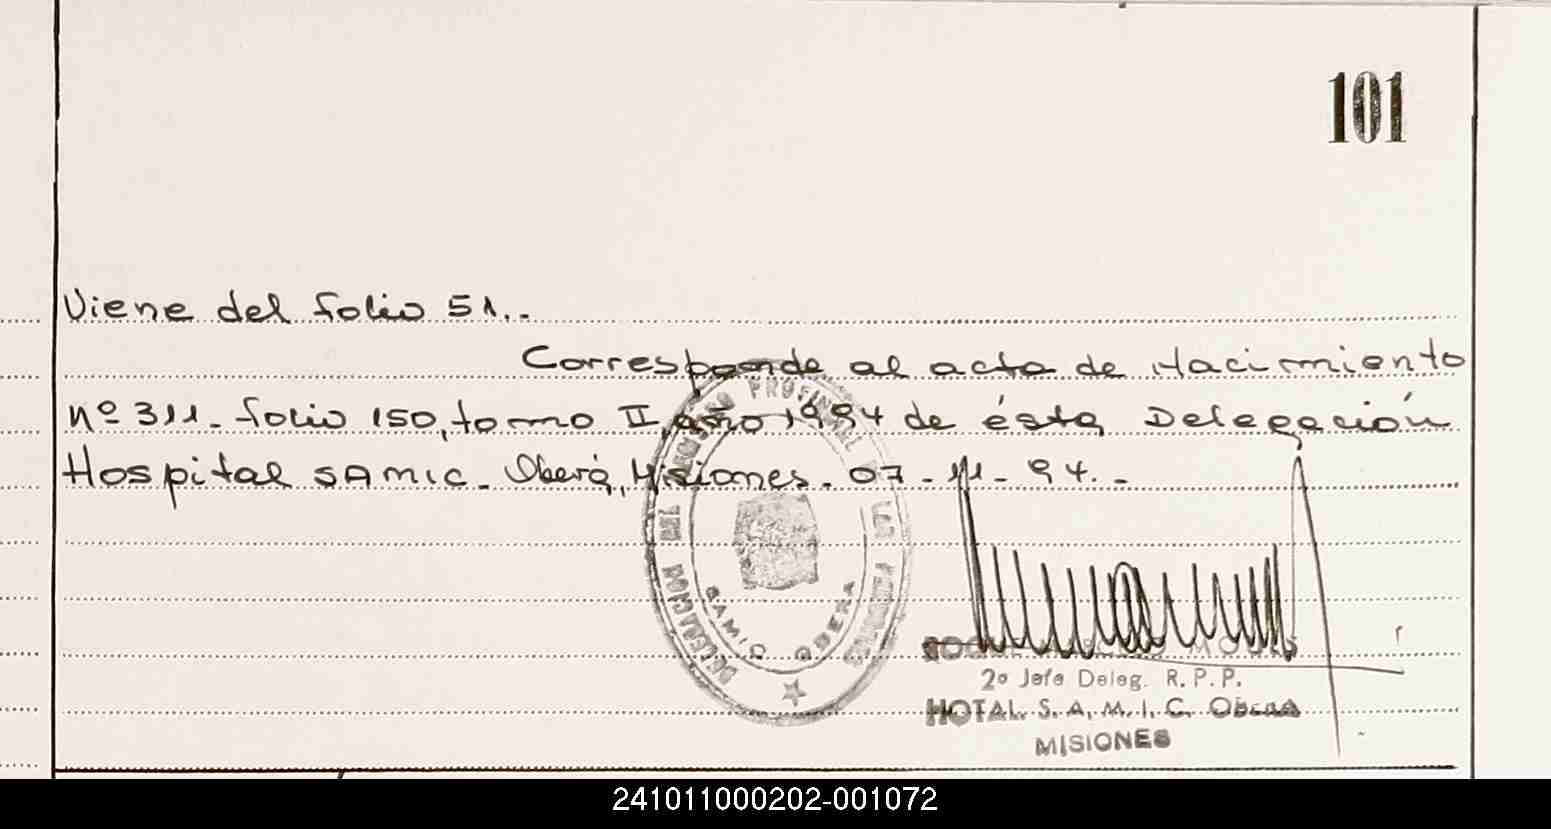 101
Viene del folio 51..
Corresponde al acta de Nacimiento
Nº 311. folio 150, tomo II, año 1994 de ésta Delegación
Hospital SAMIC. Oberá, Misiones. 07-11-94.-
DELEGACION DEL REGISTRO PROVINCIAL DE LAS PERSONAS
SAMIC OBERA
2º Jefe Deleg. R.P.P.
HOTAL. S. A. M. I. C. Oberá
MISIONES
241011000202-001072